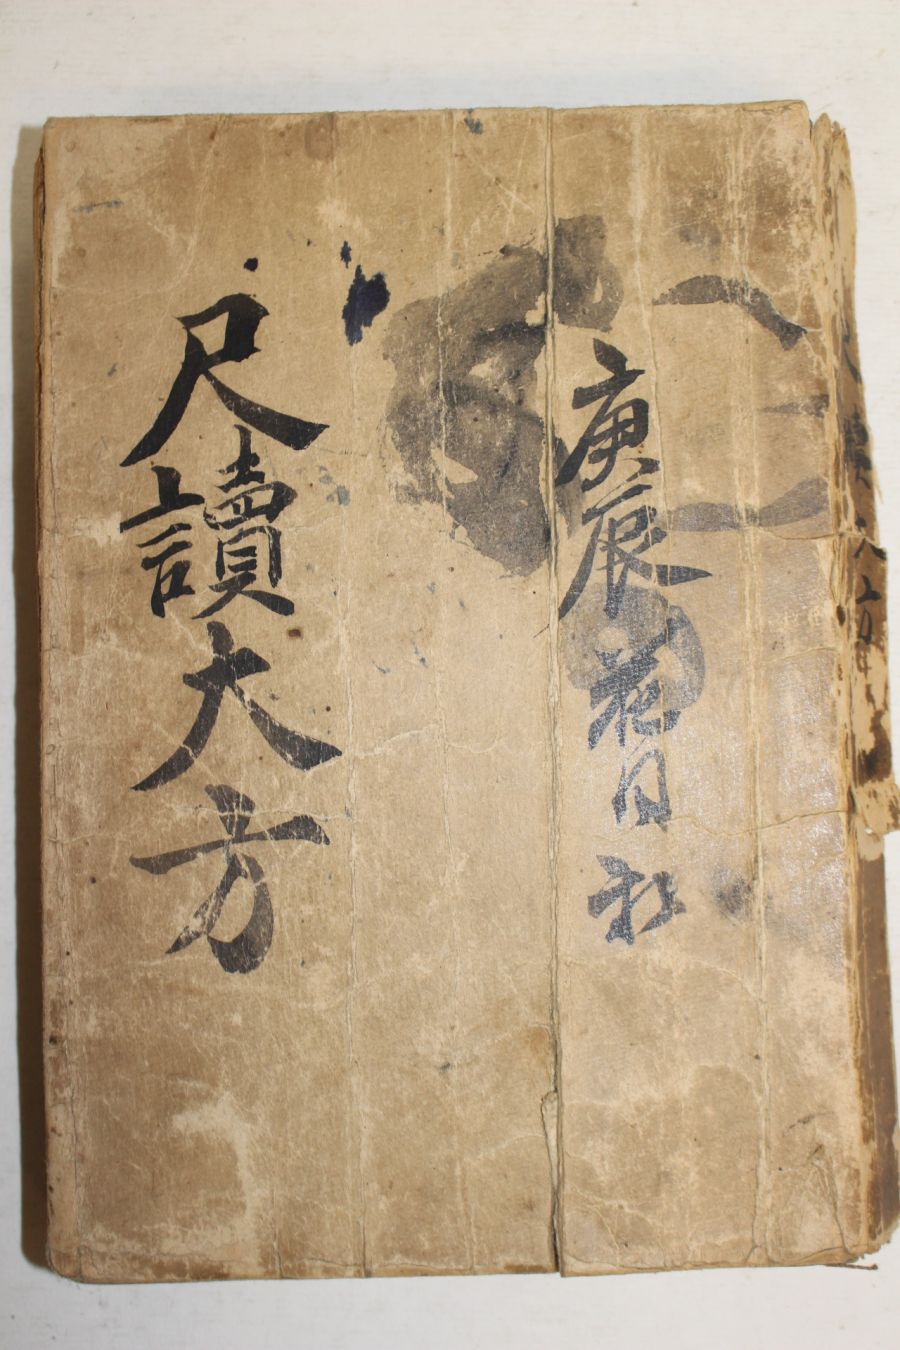 庚辰花月社
尺讀大方